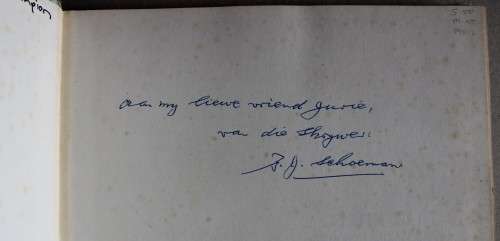 pion
Aan my liewe vriend Jurie,
van die Skrywer:
P. J. Schoeman